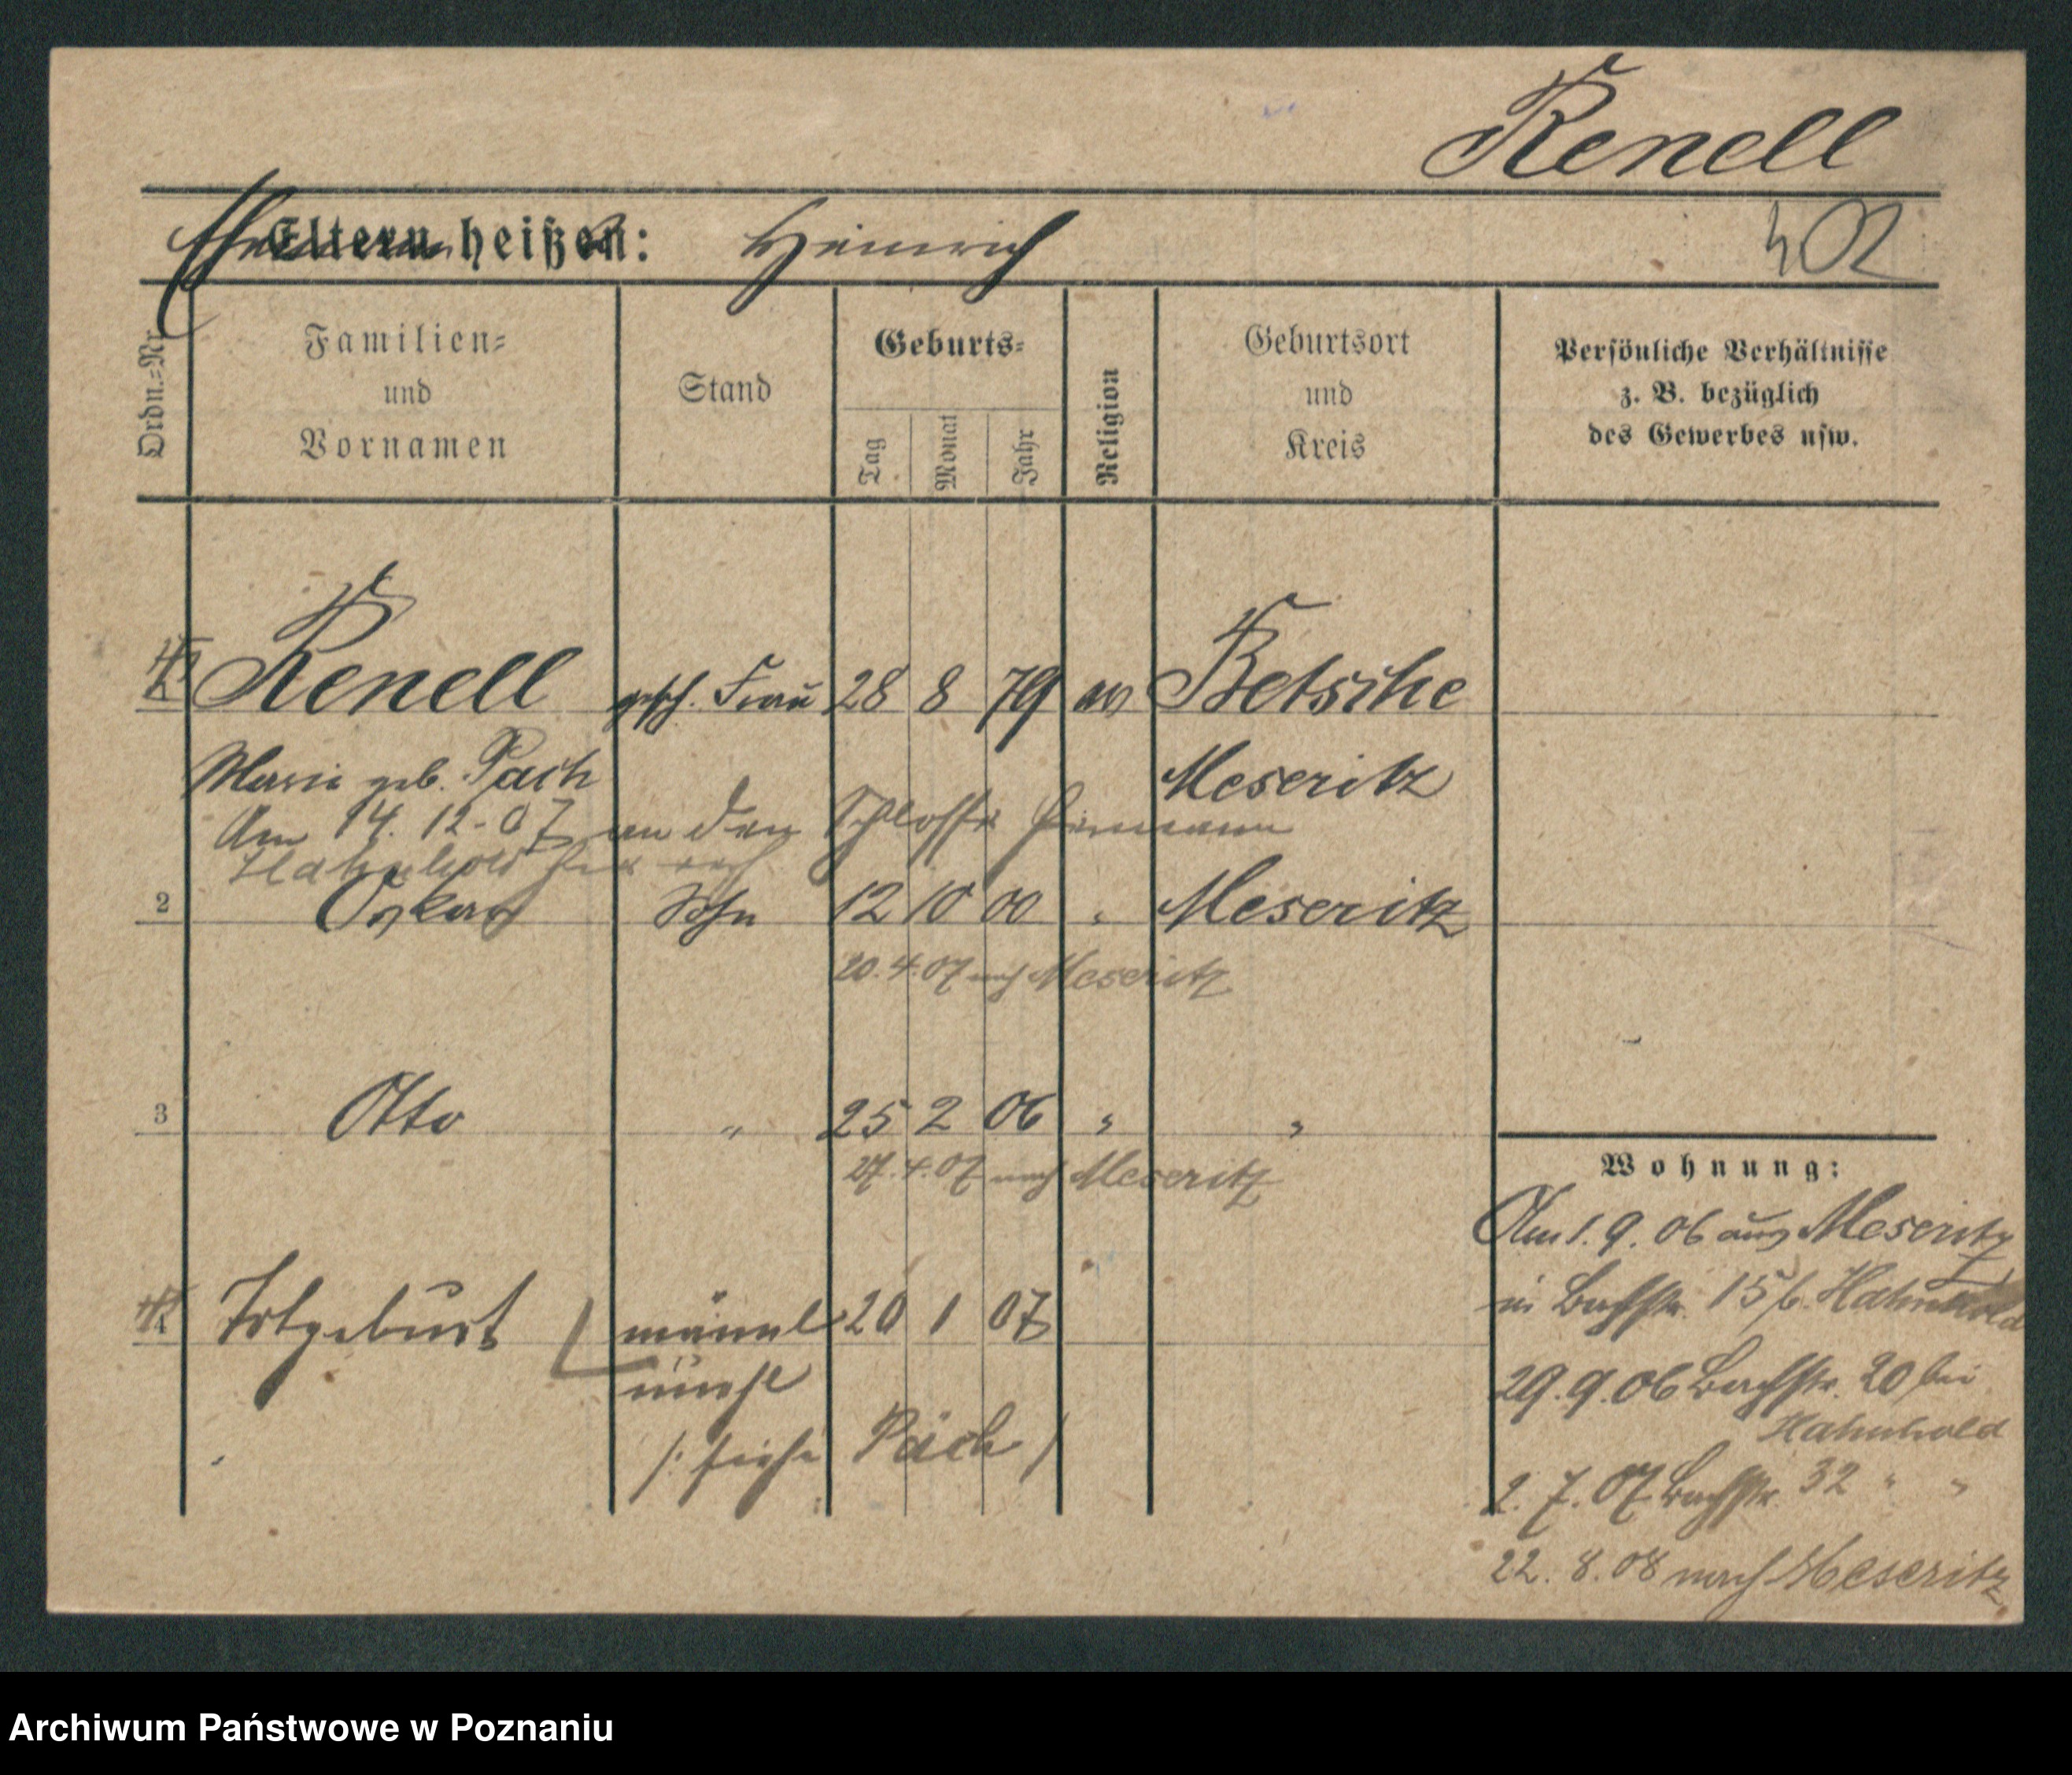 Renell
Eltern heißen: Heinrich
402
Ordn.=Nr.
Familien=
und
Vornamen
Stand
Geburts=
Tag
Monat
Jahr
Religion
Geburtsort
und
Kreis
Persönliche Verhältnisse
z. B. bezüglich
des Gewerbes usw.
Renell gesch. Frau 28 8 79 ev Betsche
Marie geb. Pach Meseritz
Am 14. 12. 07 an den Schlosser Hermann
Hahnhold
2 Oskar Sohn 12 10 00 " Meseritz
20. 4. 07 nach Meseritz
3 Otto " 25 2 06 " "
27. 4. 07 nach Meseritz
Wohnung:
Am 1. 9. 06 aus Meseritz
in Bachstr. 15 b. Hahnhold
29. 9. 06 Bachstr. 20 bei
Hahnhold
2. 7. 07 Bachstr. 32 " "
22. 8. 08 nach Meseritz
Totgeburt männl 20 1 07
unehl
/: siehe Päch /
Archiwum Państwowe w Poznaniu